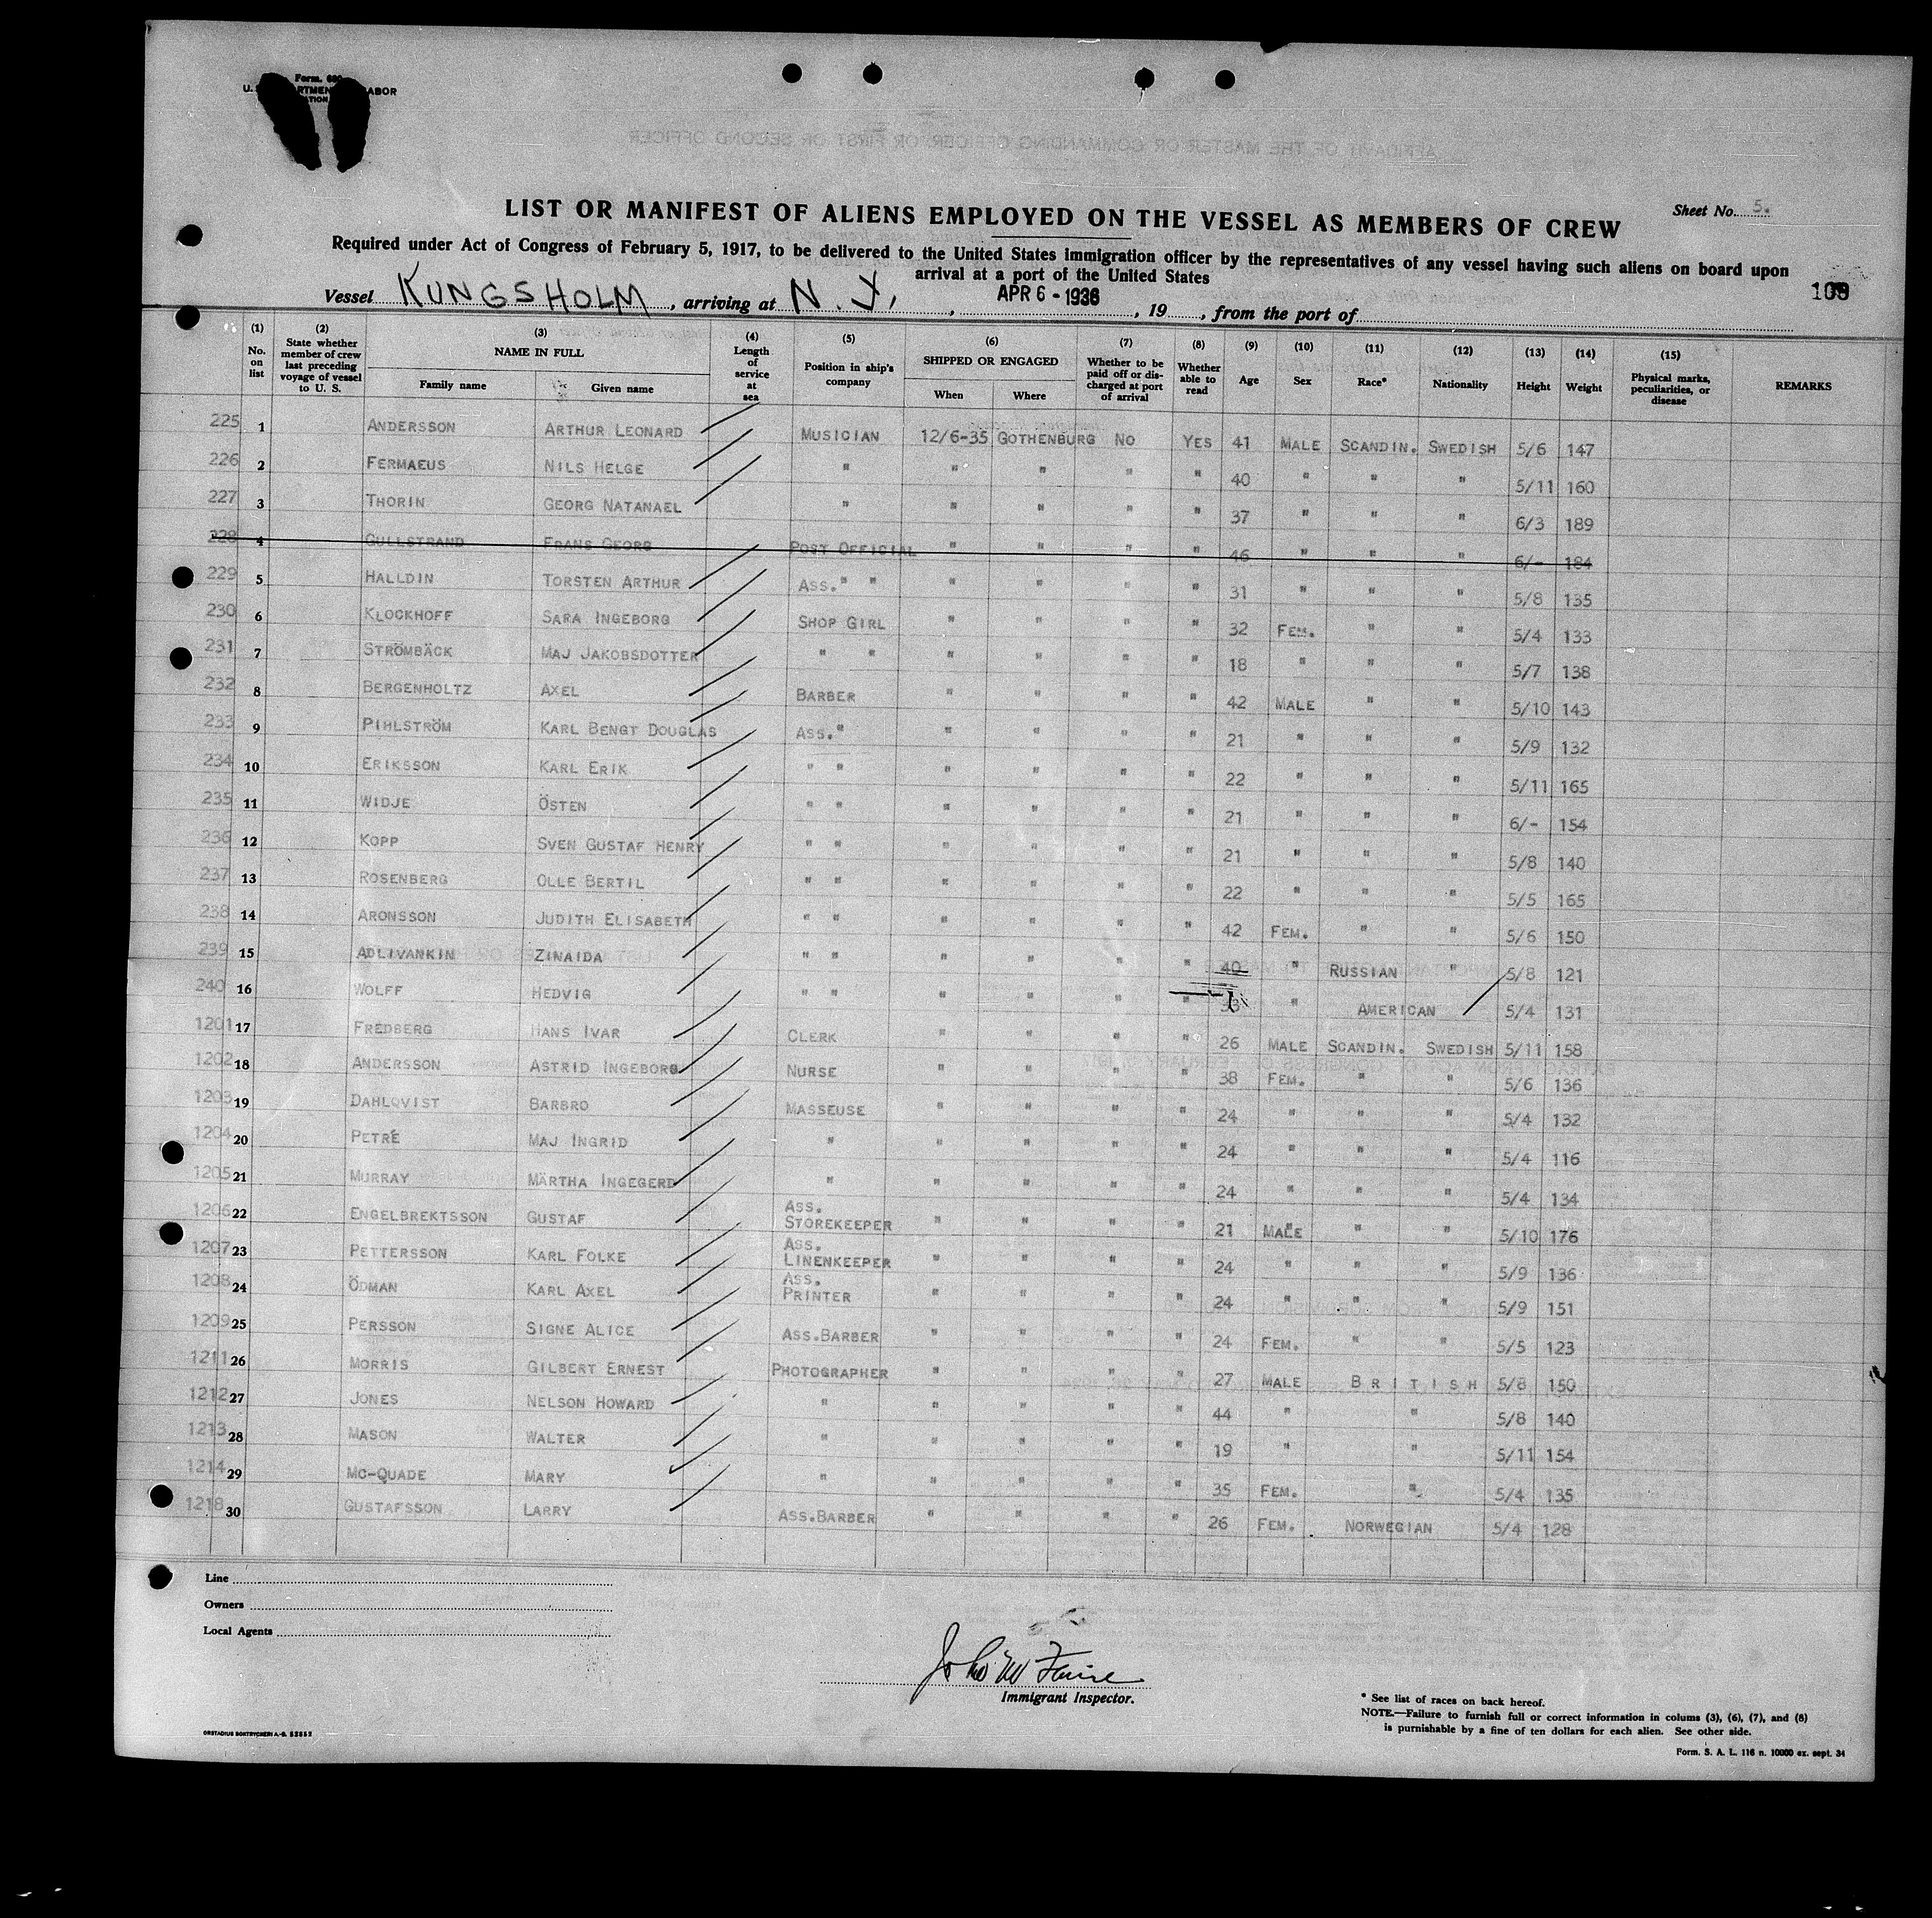 Form. 680
U. S. DEPARTMENT LABOR
LIST OR MANIFEST OF ALIENS EMPLOYED ON THE VESSEL AS MEMBERS OF CREW
Sheet No. 5.
Required under Act of Congress of February 5, 1917, to be delivered to the United States immigration officer by the representatives of any vessel having such aliens on board upon
arrival at a port of the United States
Vessel KUNGSHOLM, arriving at N. Y., APR 6 - 1936, 19, from the port of
109
(1) No. on list (2) State whether member of crew last preceding voyage of vessel to U. S. (3) NAME IN FULL Family name Given name (4) Length of service at sea (5) Position in ship's company (6) SHIPPED OR ENGAGED When Where (7) Whether to be paid off or discharged at port of arrival (8) Whether able to read (9) Age (10) Sex (11) Race* (12) Nationality (13) Height (14) Weight (15) Physical marks, peculiarities, or disease REMARKS
225 1 ANDERSSON ARTHUR LEONARD MUSICIAN 12/6-35 GOTHENBURG NO YES 41 MALE SCANDIN. SWEDISH 5/6 147
226 2 FERMAEUS NILS HELGE " " " " " 40 " " " 5/11 160
227 3 THORIN GEORG NATANAEL " " " " " 37 " " " 6/3 189
228 4 GULLSTRAND FRANS GEORG POST OFFICIAL " " " " 46 " " " 6/- 184
229 5 HALLDIN TORSTEN ARTHUR ASS." " " " " " 31 " " " 5/8 135
230 6 KLOCKHOFF SARA INGEBORG SHOP GIRL " " " " 32 FEM. " " 5/4 133
231 7 STRÖMBÄCK MAJ JAKOBSDOTTER " " " " " " 18 " " " 5/7 138
232 8 BERGENHOLTZ AXEL BARBER " " " " 42 MALE " " 5/10 143
233 9 PIHLSTRÖM KARL BENGT DOUGLAS ASS." " " " " 21 " " " 5/9 132
234 10 ERIKSSON KARL ERIK " " " " " " 22 " " " 5/11 165
235 11 WIDJE ÖSTEN " " " " " " 21 " " " 6/- 154
236 12 KOPP SVEN GUSTAF HENRY " " " " " " 21 " " " 5/8 140
237 13 ROSENBERG OLLE BERTIL " " " " " " 22 " " " 5/5 165
238 14 ARONSSON JUDITH ELISABETH " " " " " " 42 FEM. " " 5/6 150
239 15 ADLIVANKIN ZINAIDA " " " " " " 40 " RUSSIAN " 5/8 121
240 16 WOLFF HEDVIG " " " " " " " AMERICAN 5/4 131
1201 17 FREDBERG HANS IVAR CLERK " " " " 26 MALE SCANDIN. SWEDISH 5/11 158
1202 18 ANDERSSON ASTRID INGEBORG NURSE " " " " 38 FEM. " " 5/6 136
1203 19 DAHLQVIST BARBRO MASSEUSE " " " " 24 " " " 5/4 132
1204 20 PETRÉ MAJ INGRID " " " " " 24 " " " 5/4 116
1205 21 MURRAY MÄRTHA INGEGERD " " " " " 24 " " " 5/4 134
1206 22 ENGELBREKTSSON GUSTAF ASS. STOREKEEPER " " " " 21 MALE " " 5/10 176
1207 23 PETTERSSON KARL FOLKE ASS. LINENKEEPER " " " " 24 " " " 5/9 136
1208 24 ÖDMAN KARL AXEL ASS. PRINTER " " " " 24 " " " 5/9 151
1209 25 PERSSON SIGNE ALICE ASS.BARBER " " " " 24 FEM. " " 5/5 123
1211 26 MORRIS GILBERT ERNEST PHOTOGRAPHER " " " " 27 MALE BRITISH 5/8 150
1212 27 JONES NELSON HOWARD " " " " " 44 " " 5/8 140
1213 28 MASON WALTER " " " " " 19 " " 5/11 154
1214 29 MC-QUADE MARY " " " " " 35 FEM. " 5/4 135
1218 30 GUSTAFSSON LARRY ASS.BARBER " " " " 26 FEM. NORWEGIAN 5/4 128
Line
Owners
Local Agents
Immigrant Inspector.
* See list of races on back hereof.
NOTE.—Failure to furnish full or correct information in colums (3), (6), (7), and (8)
is purnishable by a fine of ten dollars for each alien. See other side.
Form. S. A. L. 116 n. 10000 ex. sept. 34